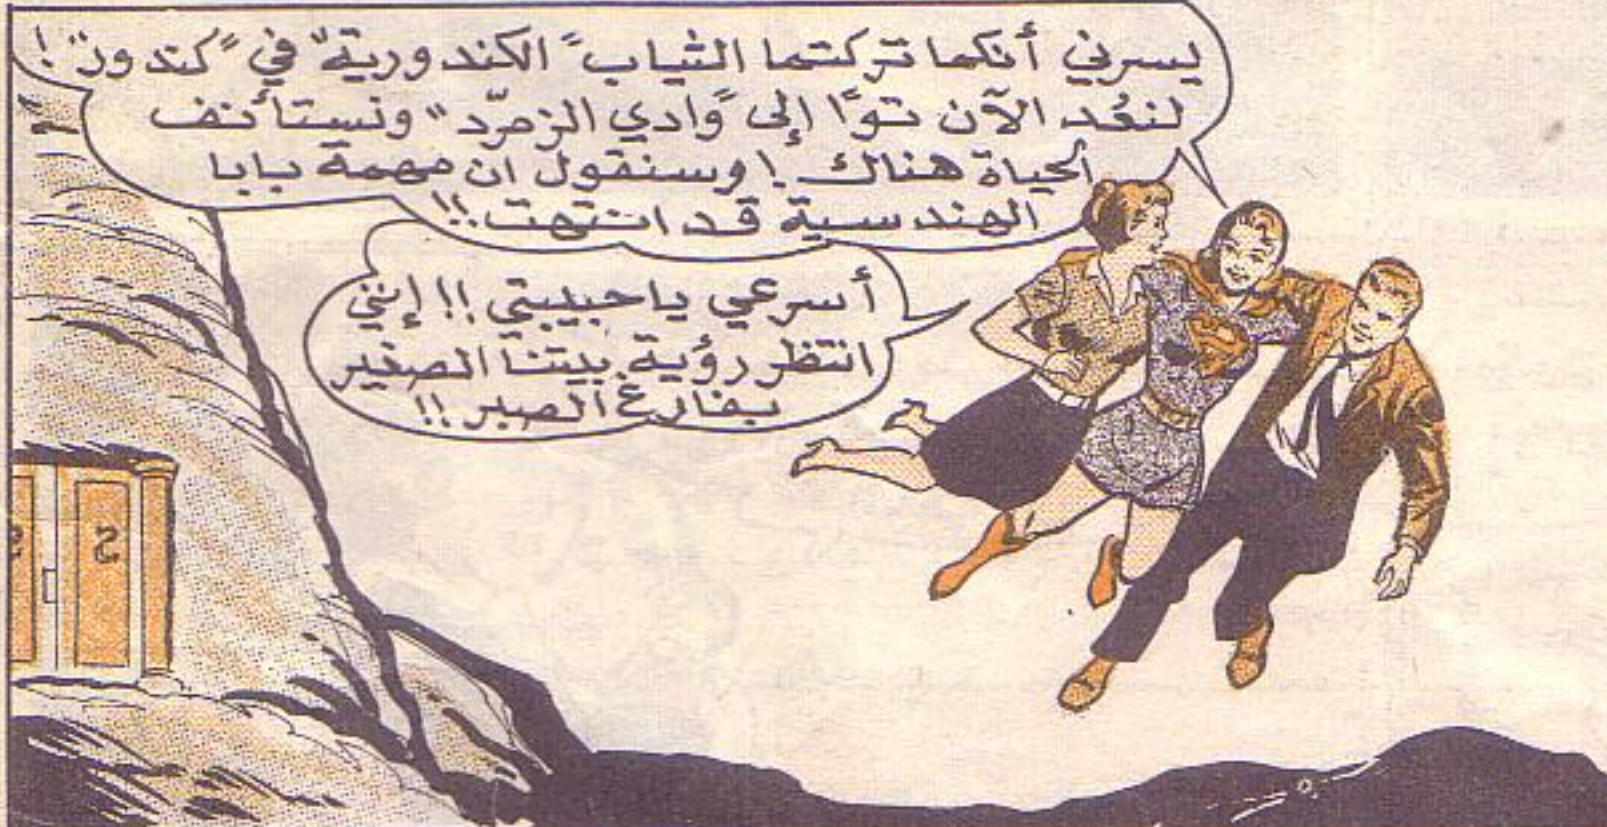 يسرني أنكما تركتما الثياب "الكندورية" في "كندور"!
لنعُد الآن توًا إلى "وادي الزمرّد" ونستأنف
الحياة هناك! وسنقول ان مهمة بابا
الهندسية قد انتهت!!
أسرعي يا حبيبتي!! إنني
انتظر رؤية بيتنا الصغير
بفارغ الصبر!!
S